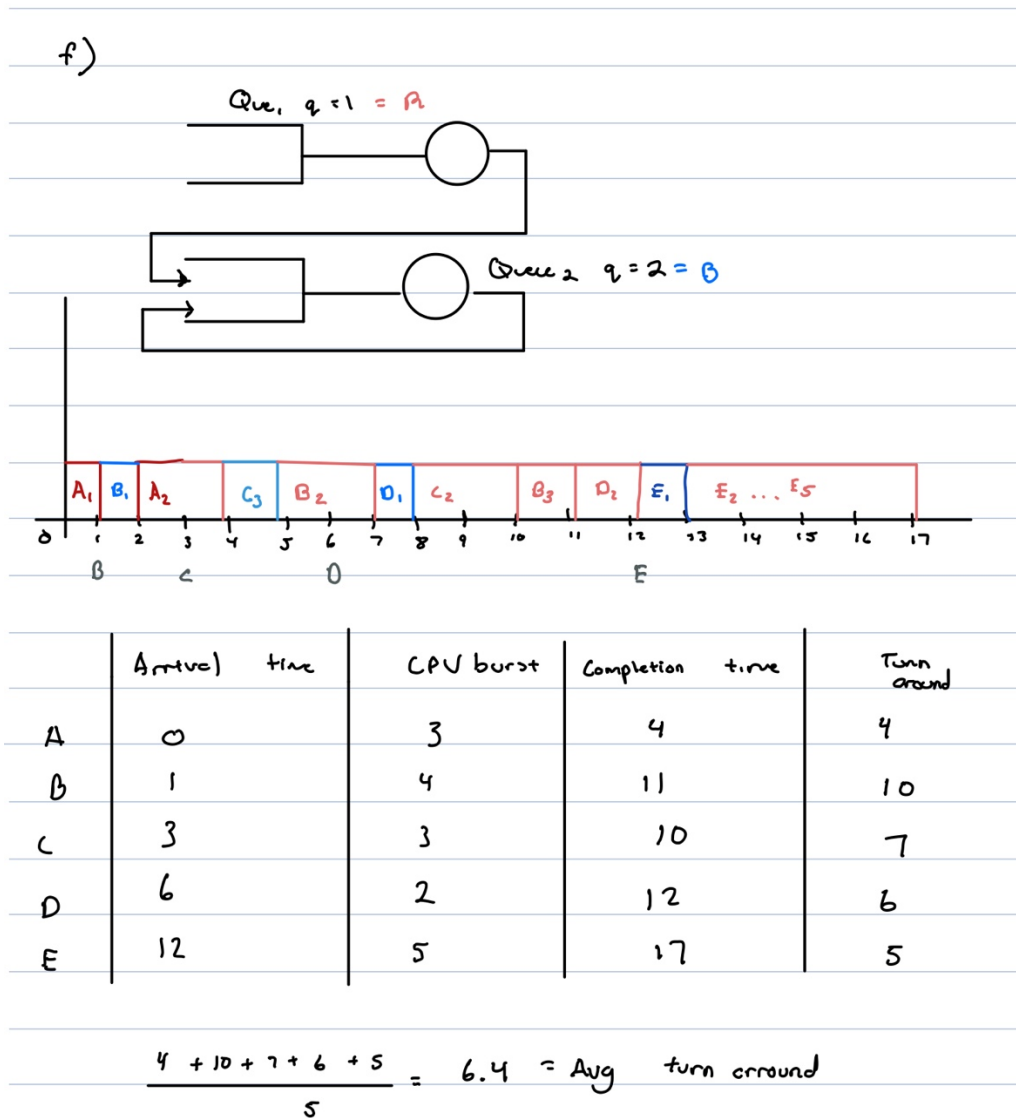 f)
Que, q = 1 = R
Queue 2 q = 2 = B
A1 B1 A2 C3 B2 D1 C2 B3 D2 E1 E2 ... E5
0 1 2 3 4 5 6 7 8 9 10 11 12 13 14 15 16 17
B C D E
Arrival time CPU burst Completion time Turn around
A 0 3 4 4
B 1 4 11 10
C 3 3 10 7
D 6 2 12 6
E 12 5 17 5
4 + 10 + 7 + 6 + 5 = 6.4 = Avg turn arround
5